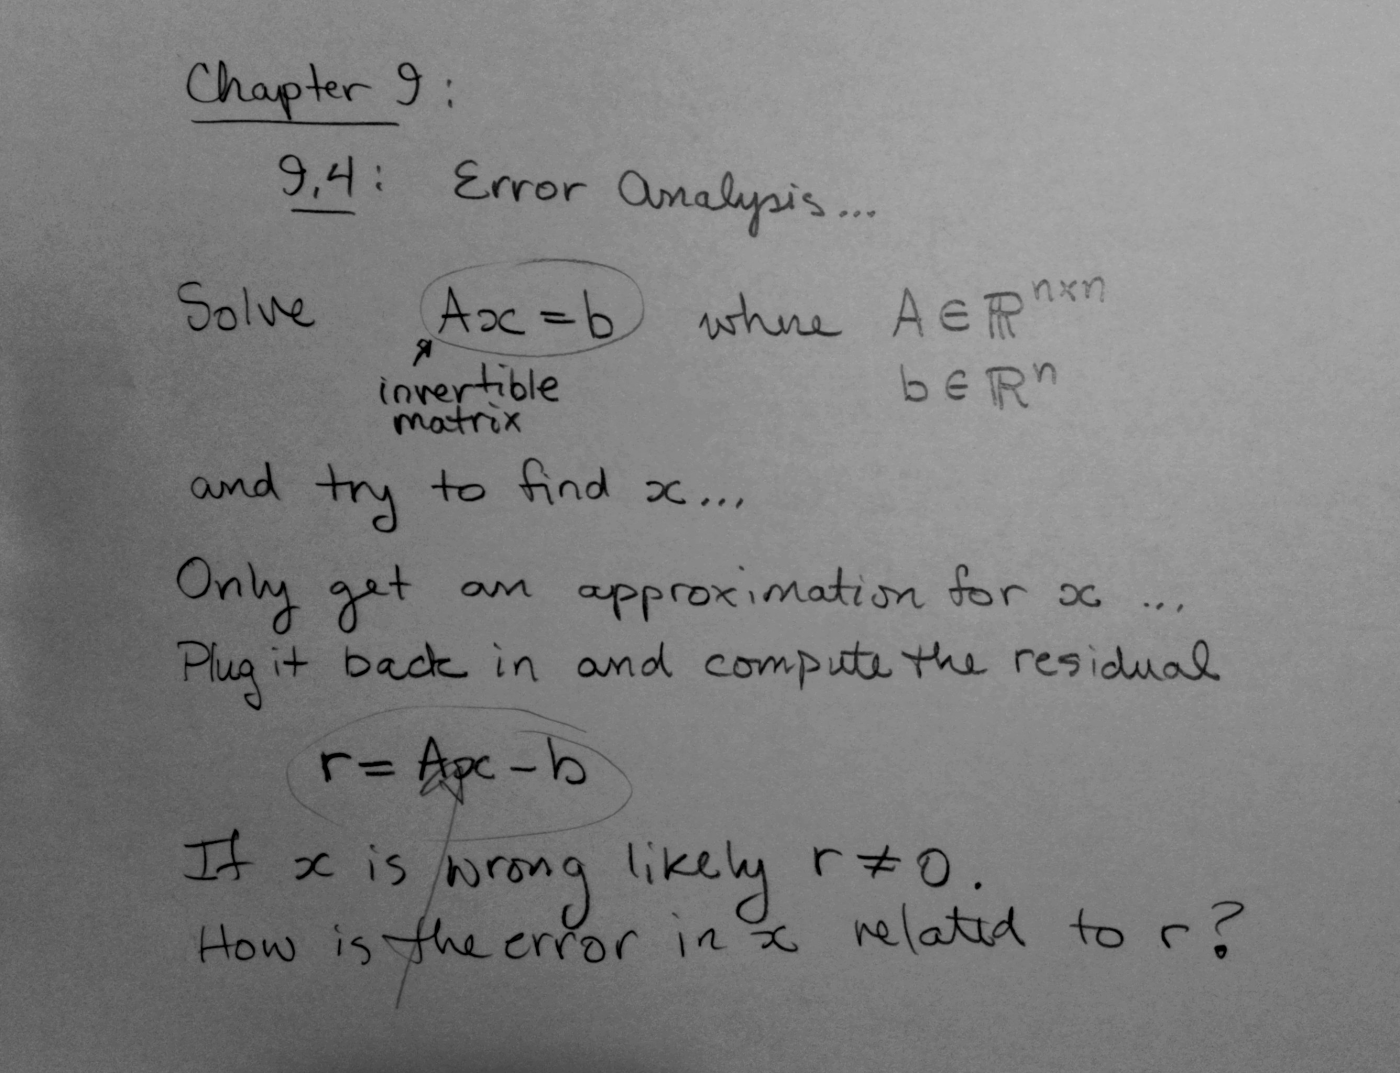 Chapter 9:
9.4: Error Analysis...
Solve Ax = b where A ∈ ℝⁿˣⁿ
invertible b ∈ ℝⁿ
matrix
and try to find x...
Only get an approximation for x ...
Plug it back in and compute the residual
r = Ax - b
If x is wrong likely r ≠ 0.
How is the error in x related to r?